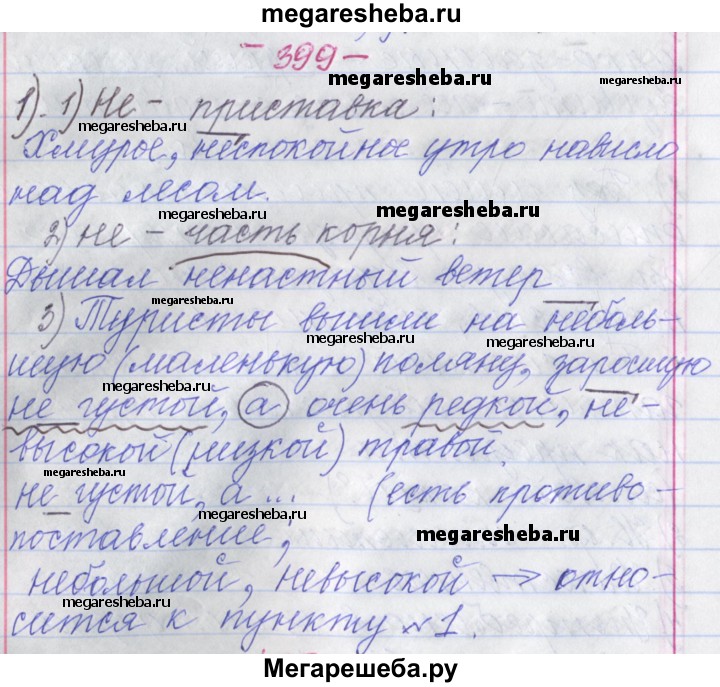 megaresheba.ru
- 399 -
megaresheba.ru
1). 1) Не - приставка:
megaresheba.ru
Хмурое, неспокойное утро нависло
над лесом.
megaresheba.ru
megaresheba.ru
2) не - часть корня:
Дышал ненастный ветер
megaresheba.ru
3) Туристы вышли на неболь-
megaresheba.ru
шую (маленькую) поляну, заросшую
megaresheba.ru
не густой, а очень редкой, не-
высокой (низкой) травой.
megaresheba.ru
не густой, а ... (есть противо-
megaresheba.ru
поставление;
megaresheba.ru
небольшой, невысокой → отно-
megaresheba.ru
сится к пункту №1.
Мегарешеба.ру